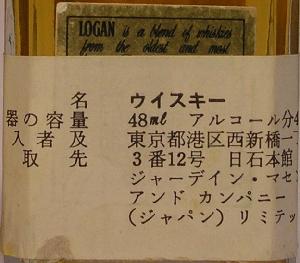 LOGAN is a blend of whiskies
from the oldest and most
名 ウイスキー
器の容量 48ml アルコール分4
入者及 東京都港区西新橋一
取先 3番12号 日石本館
ジャーデイン・マセ
アンド カンパニー
(ジャパン) リミテッ